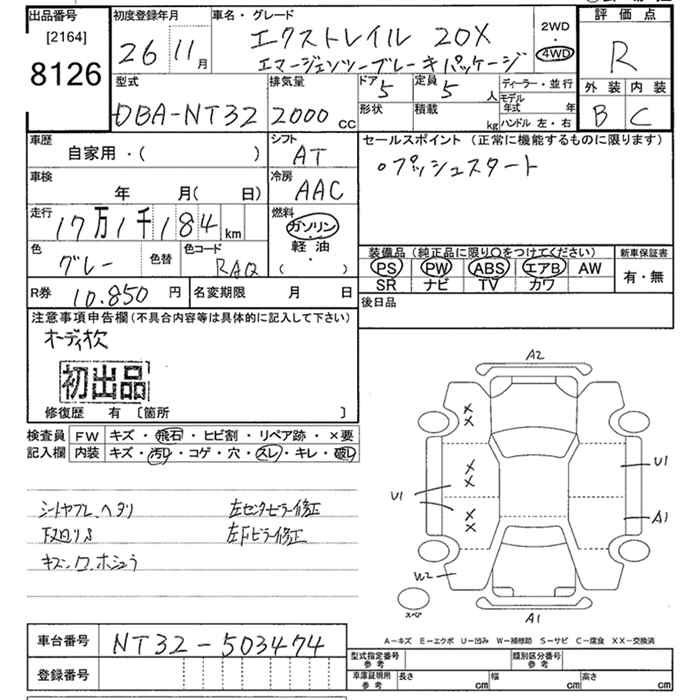 出品番号 初度登録年月 車名・グレード 2WD 評価点
[2164] 8126 26 11月 エクストレイル 20X 4WD R
エマージェンシーブレーキパッケージ
型式 排気量 ドア 5 定員 5人 ディーラー・並行 外装 内装
DBA-NT32 2000cc 形状 積載 kg モデル年式 年 B C
ハンドル 左・右
車歴 シフト セールスポイント (正常に機能するものに限ります)
自家用・( ) AT 。プッシュスタート
車検 冷房
年 月( 日) AAC
走行 燃料
17万1千184km ガソリン
軽油
( )
色 色替 色コード 装備品 (純正品に限り○をつけてください) 新車保証書
グレー RAQ PS PW ABS エアB AW 有・無
SR ナビ TV カワ
R券 10.850円 名変期限 月 日 後日品
注意事項申告欄(不具合内容等は具体的に記入して下さい)
オーディオ欠
初出品
修復歴 有 [箇所 ]
検査員 FW キズ・飛石・ヒビ割・リペア跡・×要
記入欄 内装 キズ・汚レ・コゲ・穴・スレ・キレ・破レ
左センタピラー修正
キズ
A2
× ×
× ×
× ×
U1
U1
A1
W2
スペア
A1
A-キズ E-エクボ U-凹み W-補修跡 S-サビ C-腐食 XX-交換済
車台番号 NT32-503474
登録番号
型式指定番号 参考 類別区分番号 参考
車庫証明用 参考 長さ cm 幅 cm 高さ cm